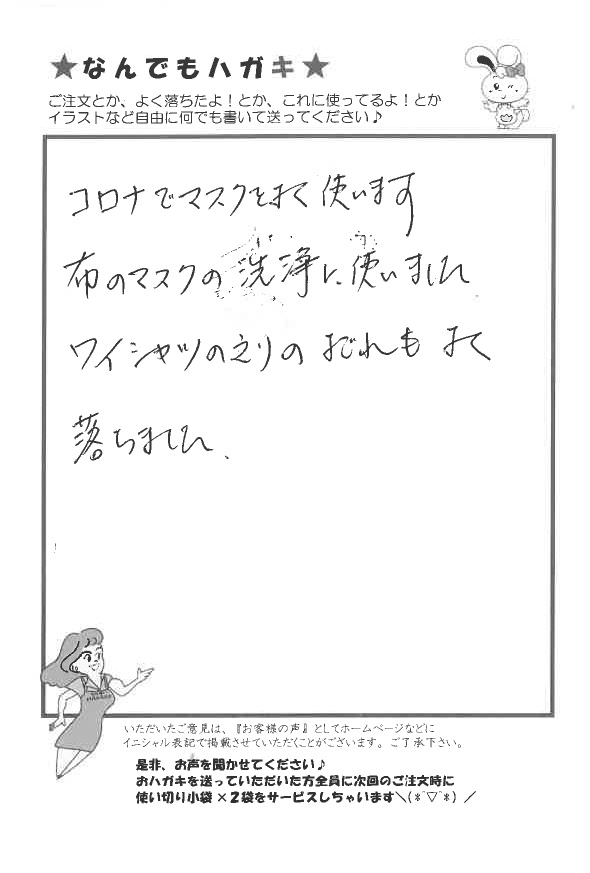 ★なんでもハガキ★
ご注文とか、よく落ちたよ！とか、これに使ってるよ！とか
イラストなど自由に何でも書いて送ってください♪
コロナでマスクをよく使います
布のマスクの洗浄に使いました
ワイシャツのえりのよごれもよく
落ちました、
いただいたご意見は、『お客様の声』としてホームページなどに
イニシャル表記で掲載させていただくことがございます。ご了承下さい。
是非、お声を聞かせてください♪
おハガキを送っていただいた方全員に次回のご注文時に
使い切り小袋×2袋をサービスしちゃいます＼(*ﾟ▽ﾟ*)／